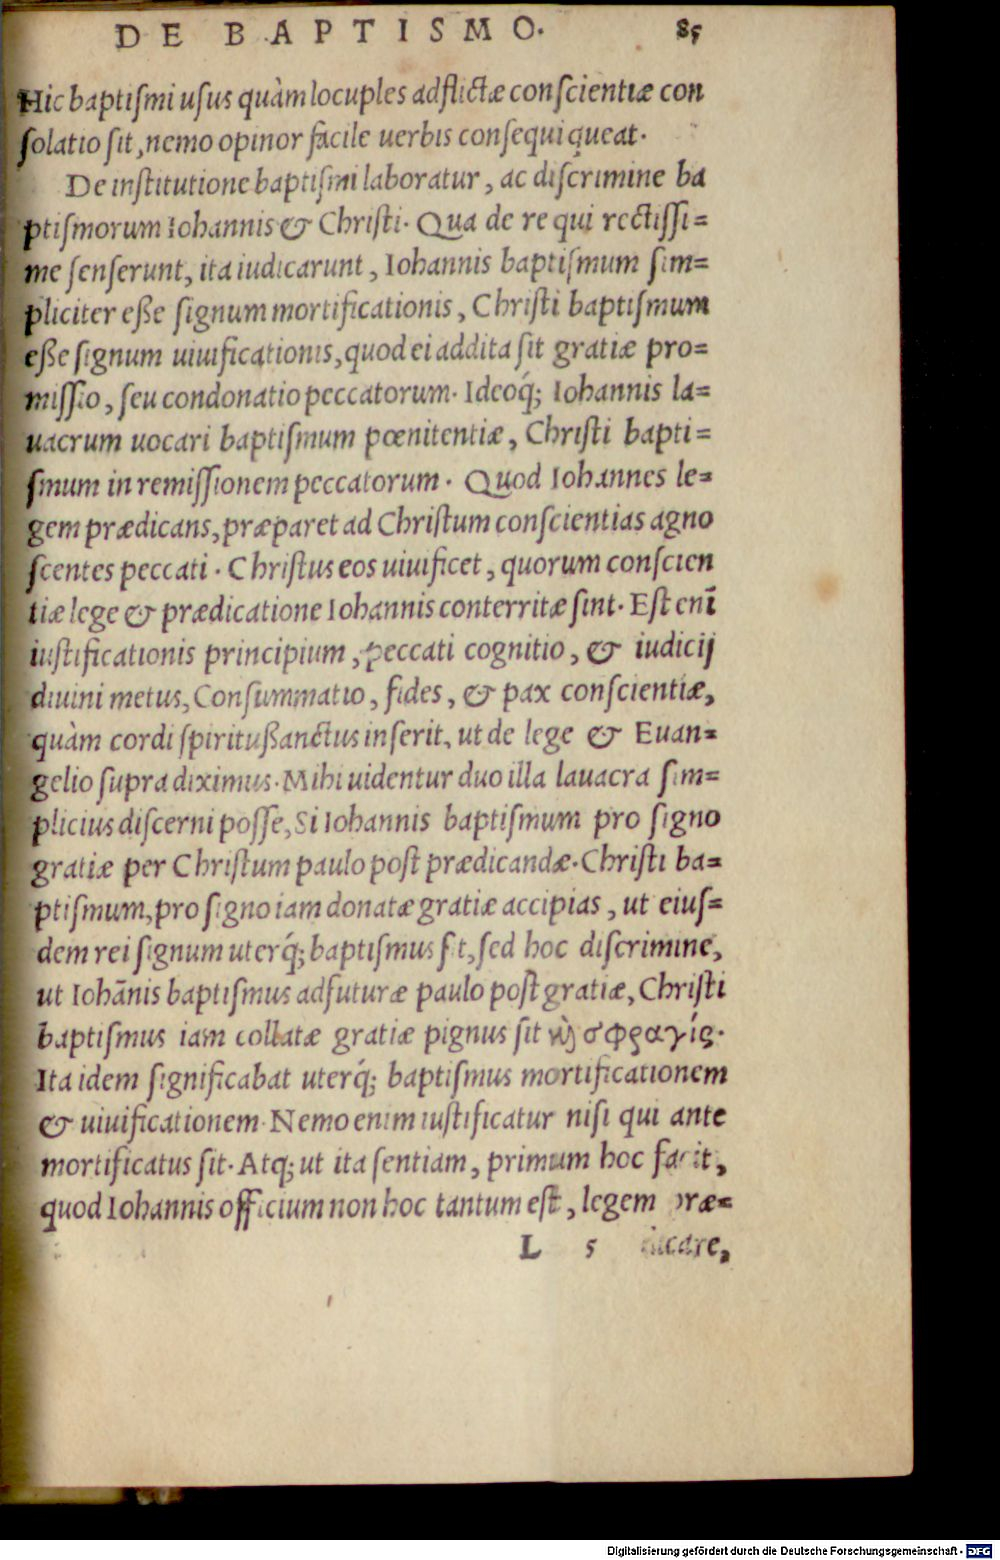 DE BAPTISMO. 85
Hic baptiſmi uſus quàm locuples adflictæ conſcientiæ con
ſolatio ſit, nemo opinor facile uerbis conſequi queat.
De inſtitutione baptiſmi laboratur, ac diſcrimine ba
ptiſmorum Iohannis & Chriſti. Qua de re qui rectiſſi=
me ſenſerunt, ita iudicarunt, Iohannis baptiſmum ſim=
pliciter eſſe ſignum mortificationis, Chriſti baptiſmum
eſſe ſignum uiuificationis, quod ei addita ſit gratiæ pro=
miſſio, ſeu condonatio peccatorum. Ideoq́; Iohannis la=
uacrum uocari baptiſmum pœnitentiæ, Chriſti bapti=
ſmum in remiſſionem peccatorum. Quod Iohannes le=
gem prædicans, præparet ad Chriſtum conſcientias agno
ſcentes peccati. Chriſtus eos uiuificet, quorum conſcien
tiæ lege & prædicatione Iohannis conterritæ ſint. Eſt enī
iuſtificationis principium, peccati cognitio, & iudicij
diuini metus, Conſummatio, fides, & pax conſcientiæ,
quàm cordi ſpirituſſanctus inſerit, ut de lege & Euan=
gelio ſupra diximus. Mihi uidentur duo illa lauacra ſim=
plicius diſcerni poſſe, Si Iohannis baptiſmum pro ſigno
gratiæ per Chriſtum paulo poſt prædicandæ. Chriſti ba=
ptiſmum, pro ſigno iam donatæ gratiæ accipias, ut eiuſ=
dem rei ſignum uterq́; baptiſmus ſit, ſed hoc diſcrimine,
ut Iohānis baptiſmus adfuturæ paulo poſt gratiæ, Chriſti
baptiſmus iam collatæ gratiæ pignus ſit ϗ̀ σφραγίς.
Ita idem ſignificabat uterq́; baptiſmus mortificationem
& uiuificationem. Nemo enim iuſtificatur niſi qui ante
mortificatus ſit. Atq; ut ita ſentiam, primum hoc facit,
quod Iohannis officium non hoc tantum eſt, legem præ=
L 5 dicare,
Digitalisierung gefördert durch die Deutsche Forschungsgemeinschaft - DFG